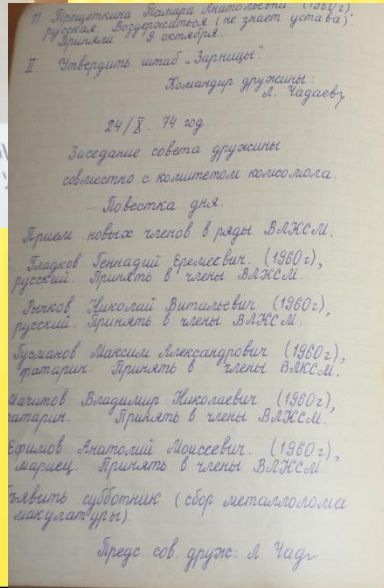 11. Трещеткина Тамара Анатольевна (1960г)
русская. Воздержаться (не знает устава).
Приняли 9 октября.
II Утвердить штаб „Зарницы".
Командир дружины:
Л. Чадаев
24/X. 74 год
Заседание совета дружины
совместно с комитетом комсомола.
Повестка дня.
Прием новых членов в ряды ВЛКСМ.
Гладков Геннадий Еремеевич. (1960г),
русский. Принять в члены ВЛКСМ.
Рычков Николай Витальевич (1960г),
русский. Принять в члены ВЛКСМ.
Гусманов Максим Александрович (1960г),
татарин. Принять в члены ВЛКСМ.
Владимир Николаевич (1960г),
татарин. Принять в члены ВЛКСМ.
Ефимов Анатолий Моисеевич. (1960г)
мариец. Принять в члены ВЛКСМ
ъявить субботник (сбор металлолома
макулатуры)
Предс. сов. друж: Л. Чад